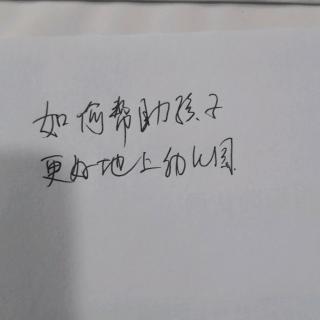 如何帮助孩子
更好地上幼儿园